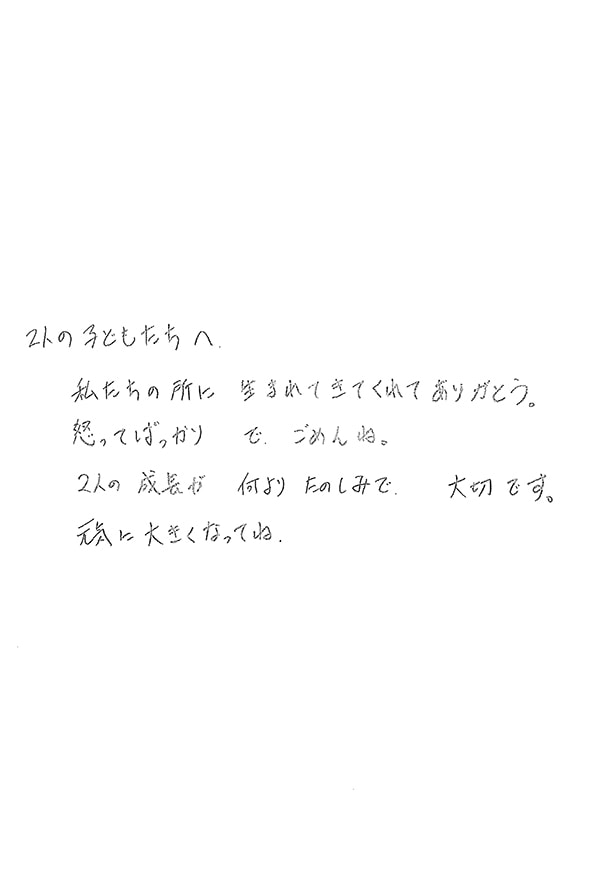 2人の子どもたちへ.
私たちの所に 生まれてきてくれてありがとう。
怒ってばっかり で. ごめんね。
2人の成長が 何より たのしみで. 大切です。
元気に大きくなってね.